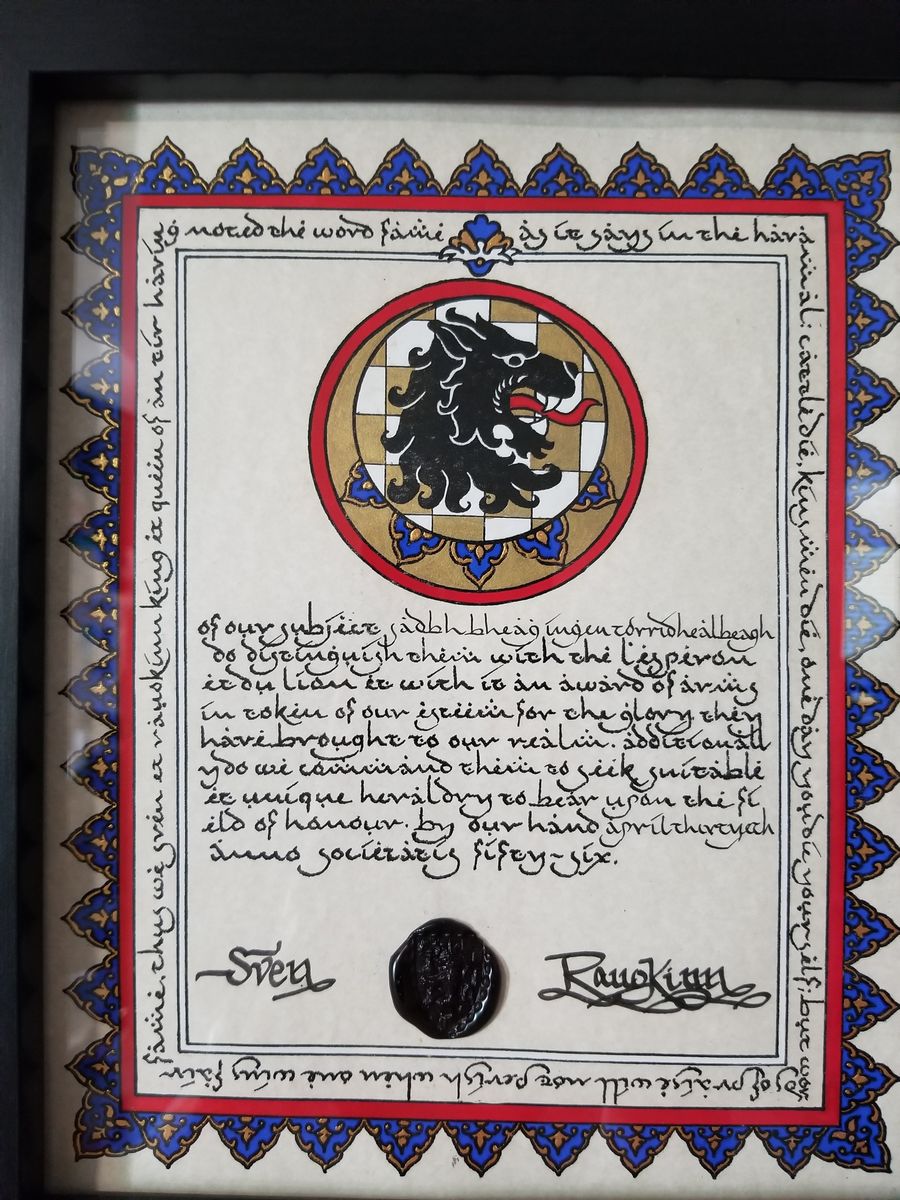 having noted the word fame as it says in the hávamál: cattle die, kinsmen die, one day you die yourself; but words of praise will not perish when one wins fair fame. thus we sven et rauokinn king et queen of an tir
of our subject sadbh bheag ingen torrdhealbeagh
do distinguish them with the l'esperon
et du lion et with it an award of arms
in token of our esteem for the glory they
have brought to our realm. additionall
y do we command them to seek suitable
et unique heraldry to bear upon the fi
eld of honour. by our hand april thirtyeth
anno societatis fifty-six.
Sven
Rauokinn